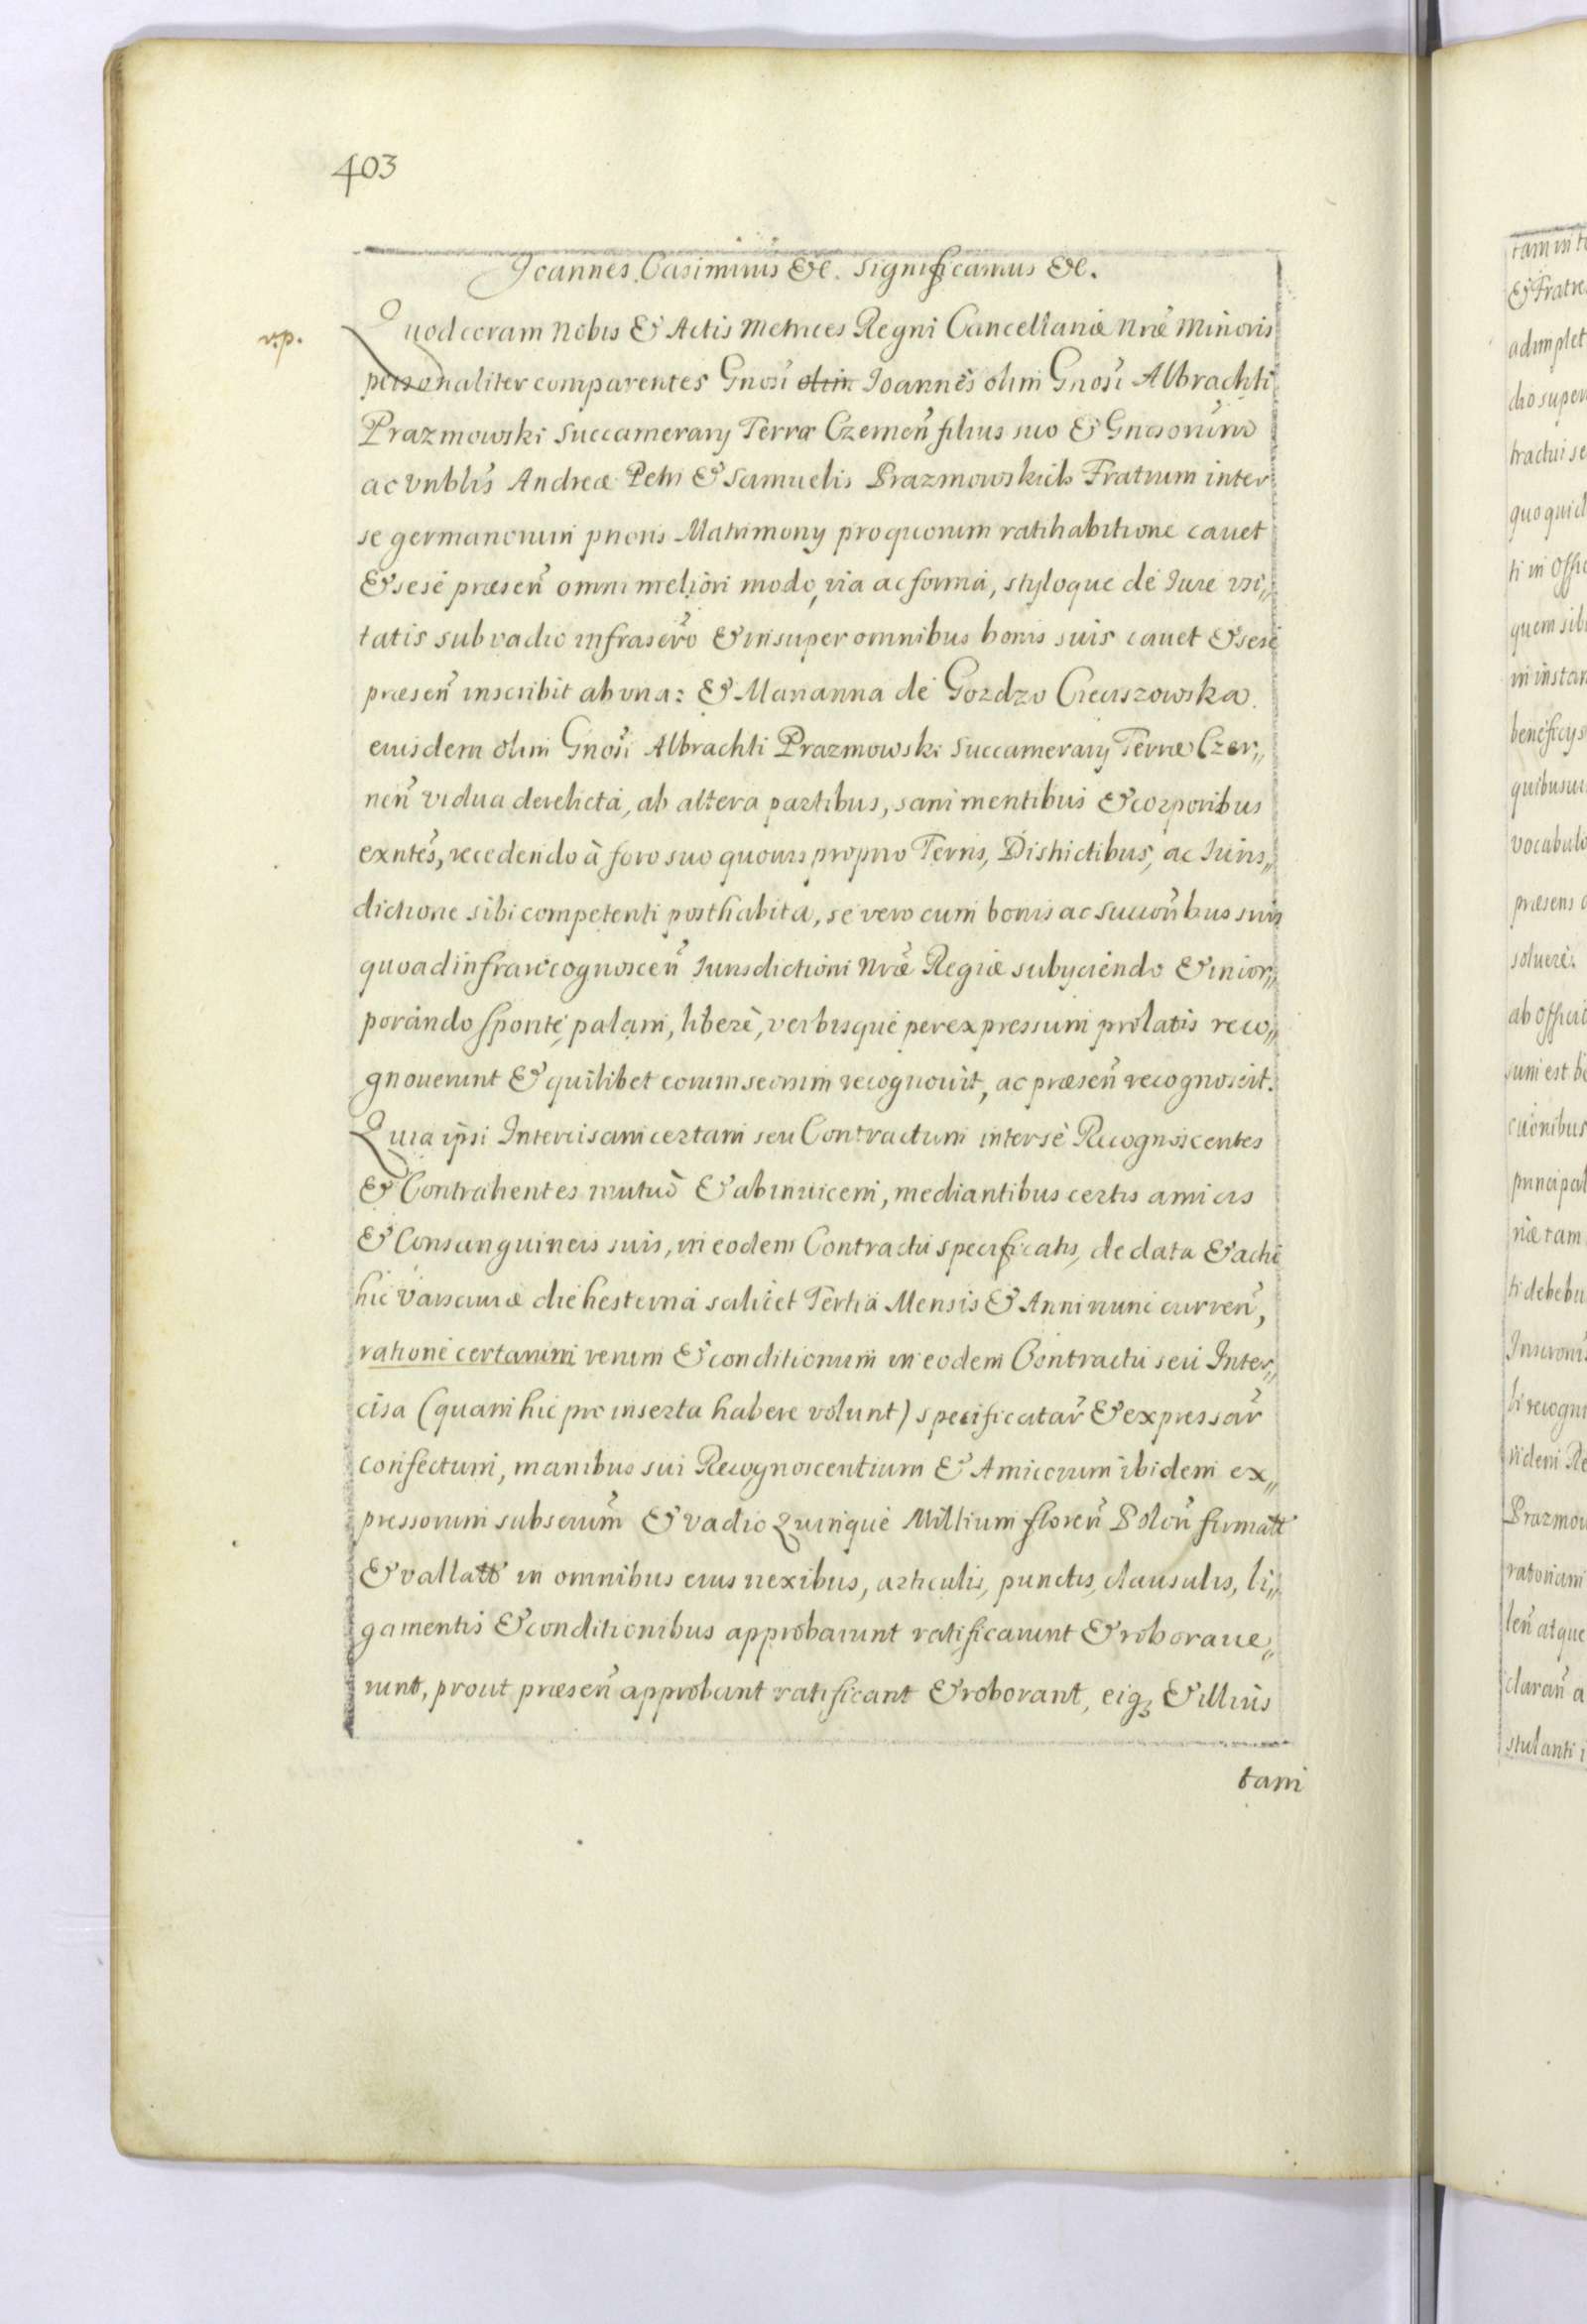 403
Joannes Casimirus &c. Significamus &c.
v.p.
Quod coram Nobis & Actis Metrices Regni Cancellariæ Nræ Minoris
personaliter comparentes Gnosi olim Joannes olim Gnosi Albrachti
Prazmowski Succamerarij Terræ Czernen̄ filius suo & Gnosorum
ac Vnblis Andreæ Petri & Samuelis Prazmowskich Fratrum inter
se germanorum prioris Matrimonij pro quorum ratihabitione cauet
& sese præsen̄ omni meliori modo, via ac forma, styloque de Iure vsi„
tatis sub vadio infrascr̄o & insuper omnibus bonis suis cauet & sese
præsen̄ inscribit ab vna: & Marianna de Gozdzo Cieciszowska
eiusdem olim Gnosi Albrachti Prazmowski Succamerarij Terræ Czer„
nen̄ vidua derelicta, ab altera partibus, sani mentibus & corporibus
exntes, recedendo à foro suo quouis proprio Terris, Districtibus, ac Iuris„
dictione sibi competenti posthabita, se vero cum bonis ac succon̄bus suis
quoad infra recognoscen̄ Iurisdictioni Nræ Regiæ subijciendo & incor„
porando sponte, palam, liberè, verbisque per expressum prolatis reco„
gnouerunt & quilibet eorum seorsim recognouit, ac præsen̄ recognoscit.
Quia ipsi Intercisam certam seu Contractum inter sè Recognoscentes
& Contrahentes mutuò & ab inuicem, mediantibus certis amicis
& Consanguineis suis, in eodem Contractu specificatis, de data & acti
hic Varsauiæ die hesterna scilicet Tertia Mensis & Anni nunc curren̄,
ratione certarum rerum & conditionum in eodem Contractu seu Inter„
cisa (quam hic pro inserta habere volunt) specificatar̄ & expressar̄
confectum, manibus sui Recognoscentium & Amicorum ibidem ex„
pressorum subscrim̄ & vadio Quinque Millium floren̄ Polon̄ firmatt
& vallatt in omnibus eius nexibus, articulis, punctis, clausulis, li„
gamentis & conditionibus approbarunt ratificarunt & roboraue„
runt, prout præsen̄ approbant ratificant & roborant, eiqꝫ & illius
tam